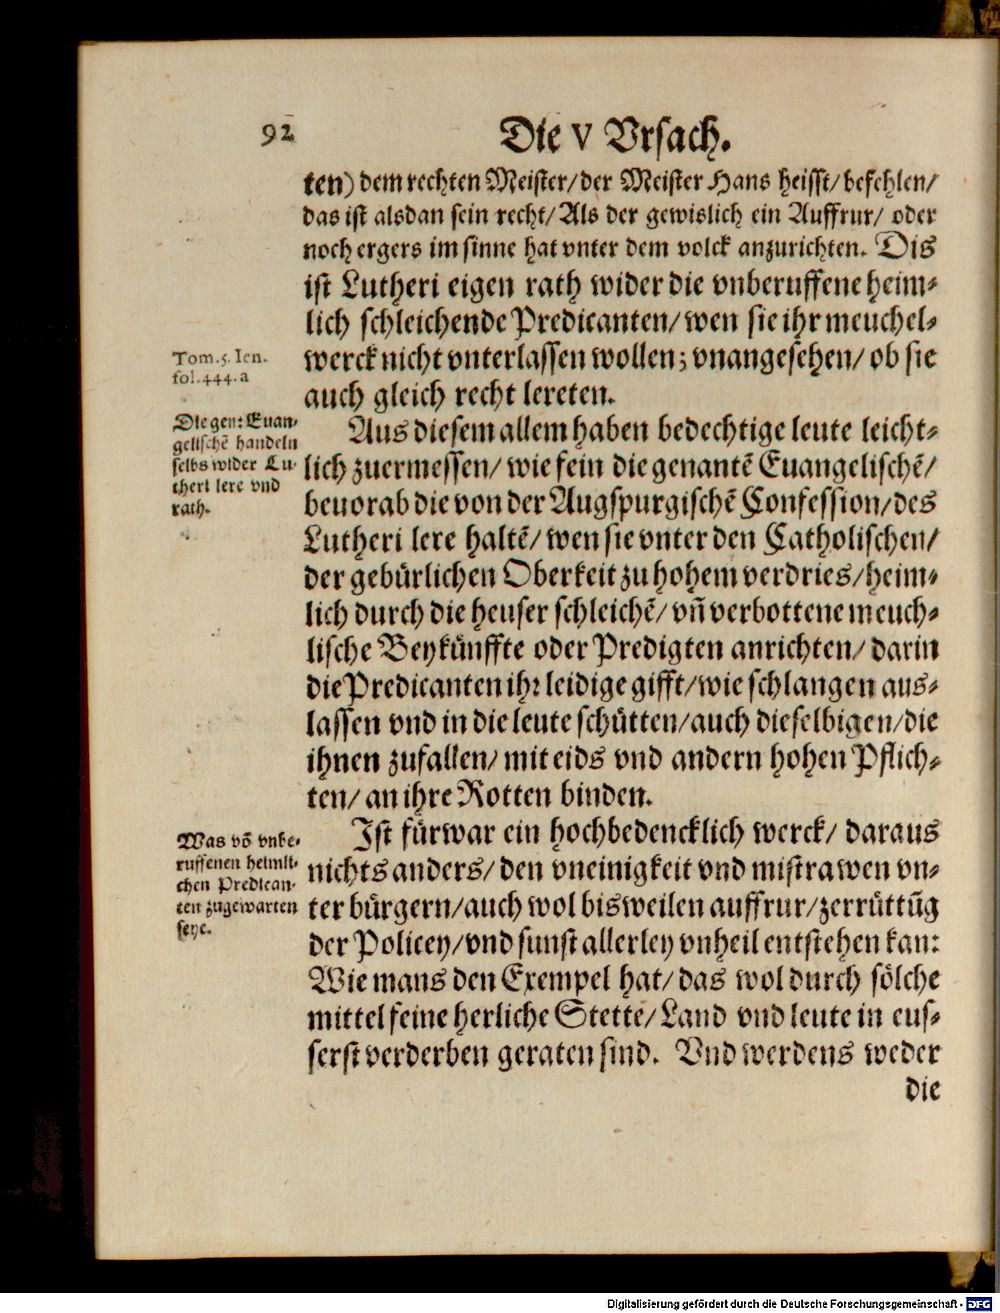 92
Die V Vrsach.
ten) dem rechten Meister/ der Meister Hans heisst/ befehlen/
das ist alsdan sein recht/ Als der gewislich ein Auffrur/ oder
noch ergers im sinne hat vnter dem volck anzurichten. Dis
ist Lutheri eigen rath wider die vnberuffene heim⸗
lich schleichende Predicanten/ wen sie ihr meuchel⸗
werck nicht vnterlassen wollen; vnangesehen/ ob sie
auch gleich recht lereten.
Tom. 5. Ien.
fol. 444. a
Die gen: Euan⸗
gelischē handeln
selbs wider Lu⸗
theri lere vnd
rath.
Aus diesem allem haben bedechtige leute leicht⸗
lich zuermessen/ wie fein die genantē Euangelischē/
beuorab die von der Augspurgischē Confession/ des
Lutheri lere haltē/ wen sie vnter den Catholischen/
der gebürlichen Oberkeit zu hohem verdries/ heim⸗
lich durch die heuser schleichē/ vn̄ verbottene meuch⸗
lische Beykünffte oder Predigten anrichten/ darin
die Predicanten ihr leidige gifft/ wie schlangen aus⸗
lassen vnd in die leute schütten/ auch dieselbigen/ die
ihnen zufallen/ mit eids vnd andern hohen Pflich⸗
ten/ an ihre Rotten binden.
Was vō vnbe⸗
ruffenen heimli⸗
chen Predican⸗
ten zugewarten
seye.
Ist fürwar ein hochbedencklich werck/ daraus
nichts anders/ den vneinigkeit vnd mistrawen vn⸗
ter bürgern/ auch wol bisweilen auffrur/ zerrüttūg
der Policey/ vnd sunst allerley vnheil entstehen kan:
Wie mans den Exempel hat/ das wol durch sölche
mittel feine herliche Stette/ Land vnd leute in eus⸗
serst verderben geraten sind. Vnd werdens weder
die
Digitalisierung gefördert durch die Deutsche Forschungsgemeinschaft - DFG